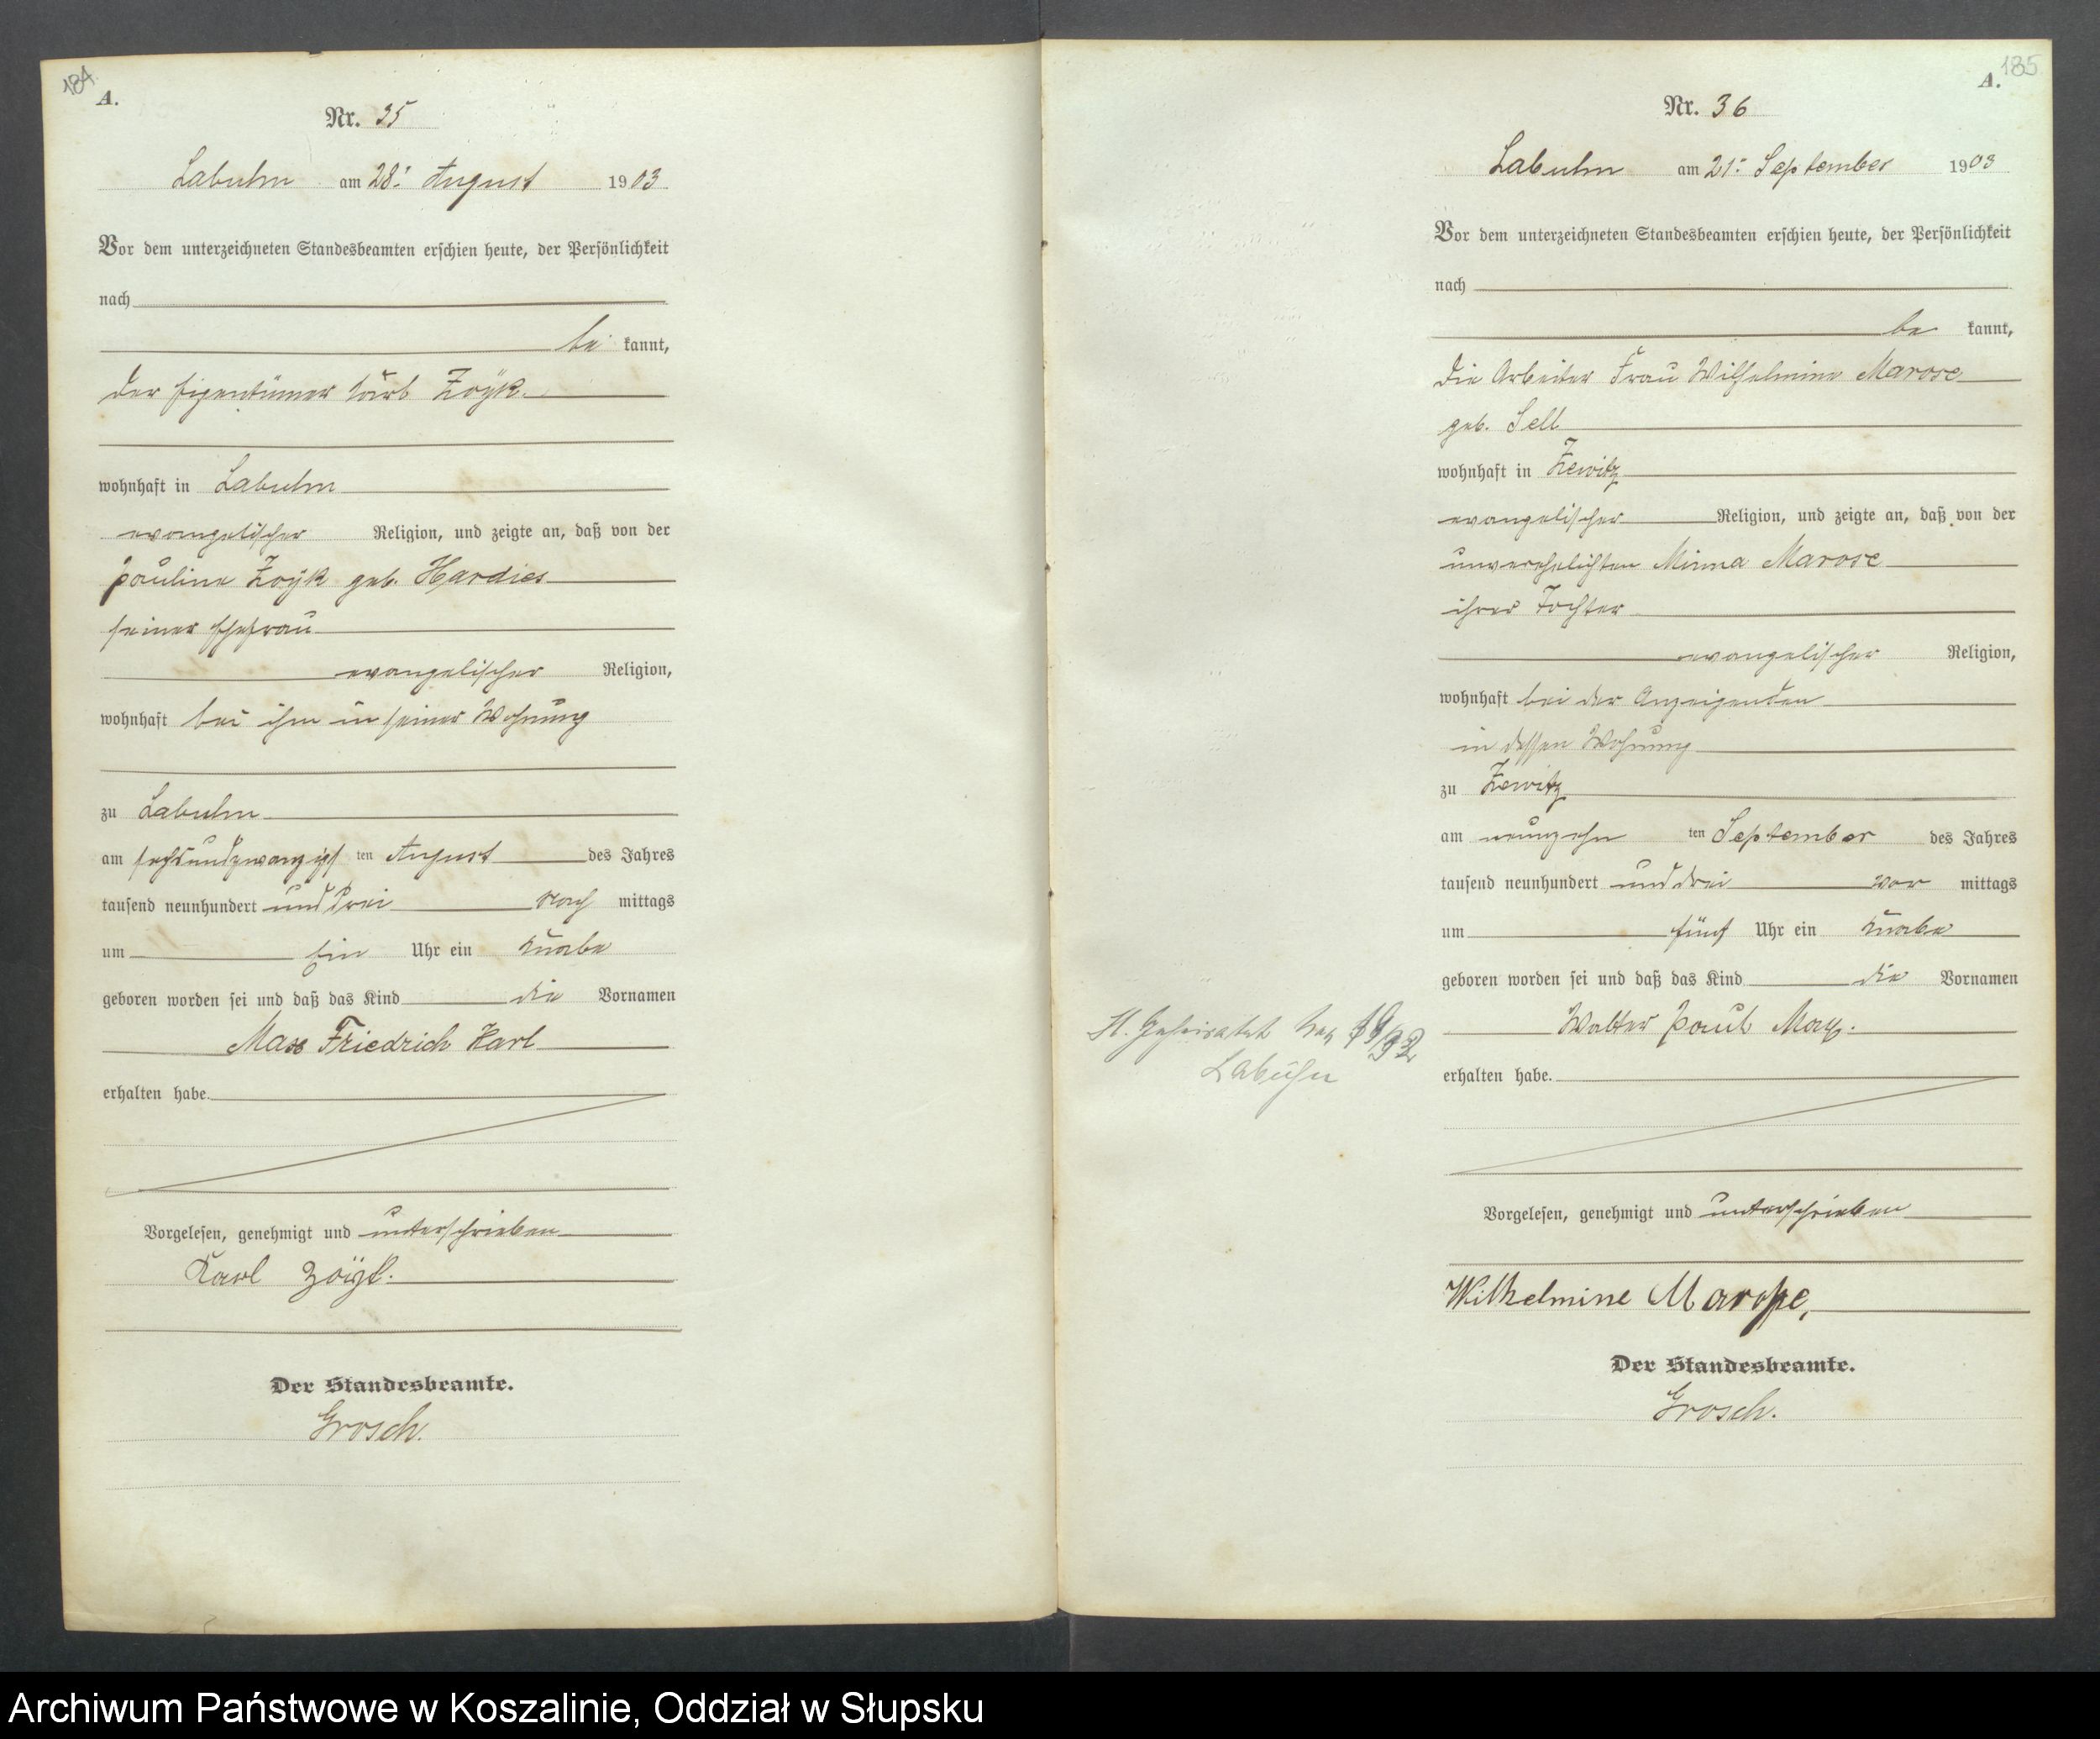 184
A.
Nr. 35
Labuhn am 28. August 1903
Vor dem unterzeichneten Standesbeamten erschien heute, der Persönlichkeit
nach
be kannt,
der Eigentümer Karl Zoyk.
wohnhaft in Labuhn
evangelischer Religion, und zeigte an, daß von der
Pauline Zoyk geb. Hardies
seiner Ehefrau
evangelischer Religion,
wohnhaft bei ihm in seiner Wohnung
zu Labuhn
am sechsundzwanzigsten August des Jahres
tausend neunhundert und drei Nach mittags
um Ein Uhr ein Knabe
geboren worden sei und daß das Kind die Vornamen
Max Friedrich Karl
erhalten habe.
Vorgelesen, genehmigt und unterschrieben
Karl
Der Standesbeamte.
Grosch.
185
A.
Nr. 36
Labuhn am 21. September 1903
Vor dem unterzeichneten Standesbeamten erschien heute, der Persönlichkeit
nach
be kannt,
die Arbeiter Frau Wilhelmine Marose
geb. Sell
wohnhaft in Zewitz
evangelischer Religion, und zeigte an, daß von der
unverehelichten Minna Marose
ihrer Tochter
evangelischer Religion,
wohnhaft bei der Anzeigenden
in dessen Wohnung
zu Zewitz
am neunzehn ten September des Jahres
tausend neunhundert und drei vor mittags
um fünf Uhr ein Knabe
geboren worden sei und daß das Kind die Vornamen
Walter Paul Max.
erhalten habe.
Labuhn
Vorgelesen, genehmigt und unterschrieben
Wilhelmine Marose,
Der Standesbeamte.
Grosch.
Archiwum Państwowe w Koszalinie, Oddział w Słupsku